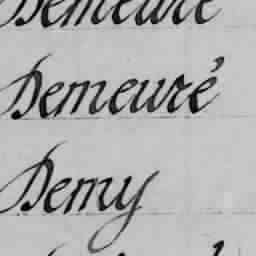 Demeure
Demeuré
Demy